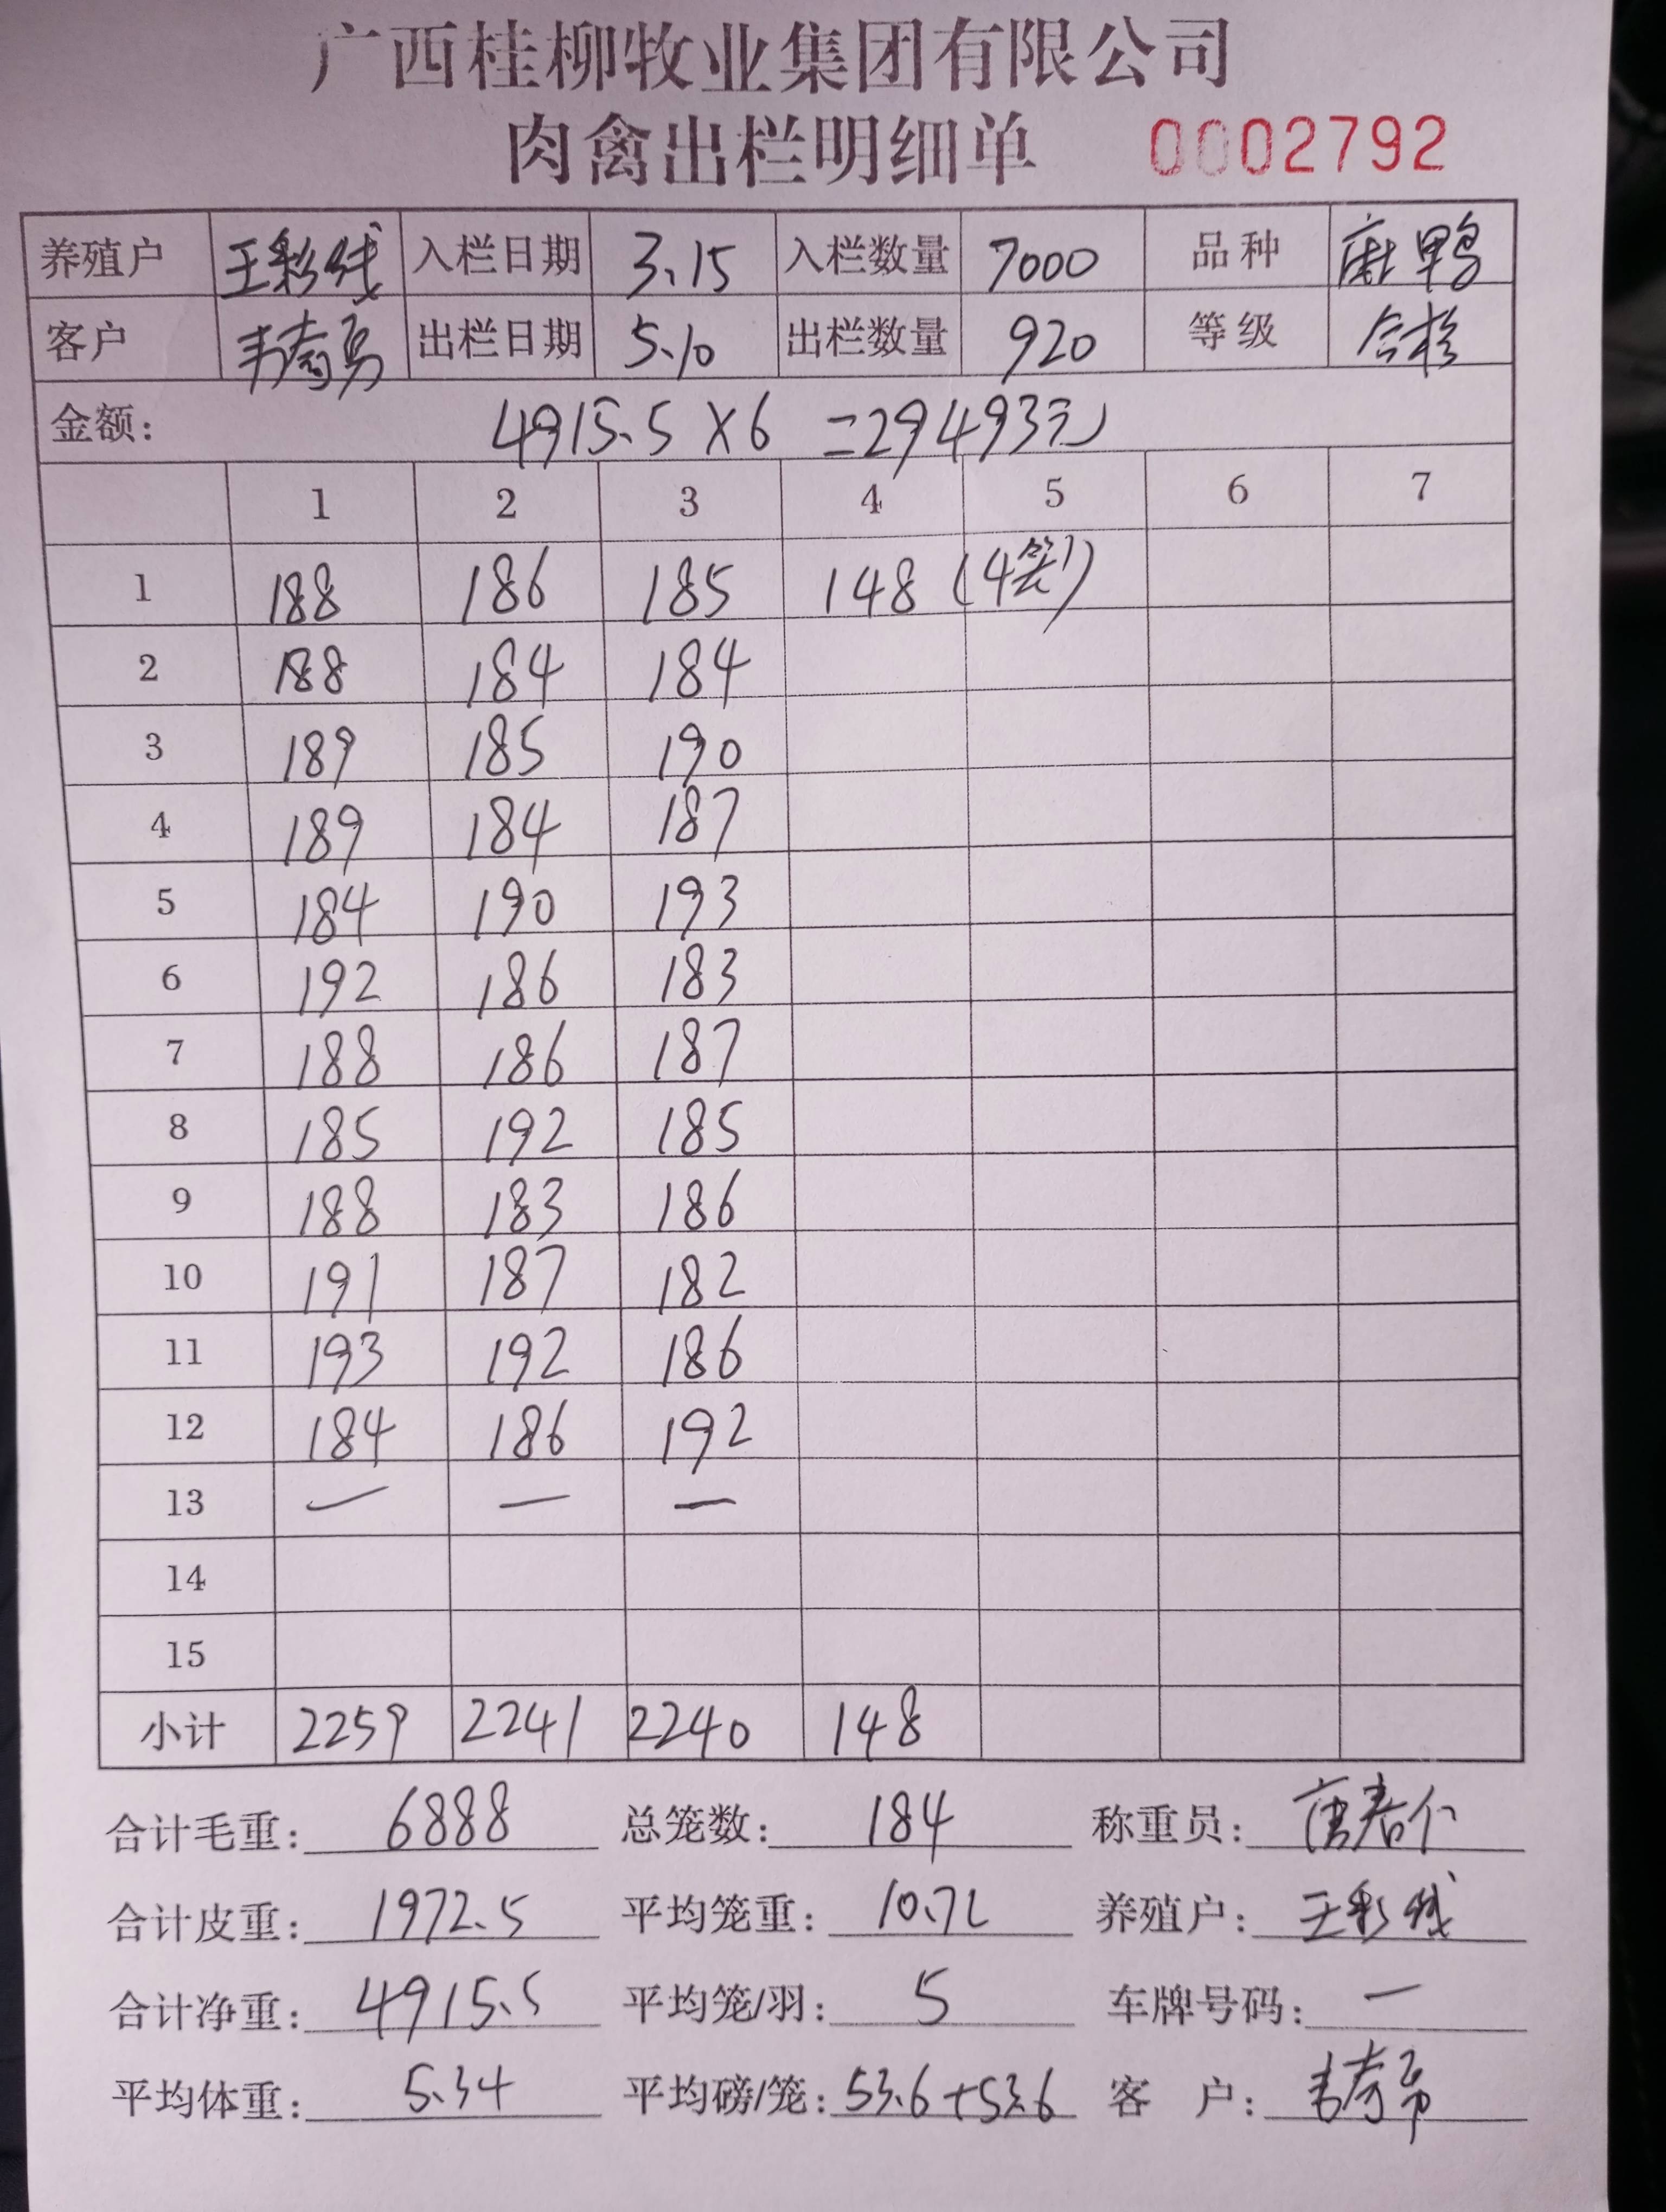 广西桂柳牧业集团有限公司
肉禽出栏明细单 0002792
养殖户 王彩线 入栏日期 3.15 入栏数量 7000 品种 麻鸭
客户 韦奇勇 出栏日期 5.10 出栏数量 920 等级 合格
金额: 4915.5×6=29493元
1 2 3 4 5 6 7
1 188 186 185 148 (4笼)
2 188 184 184
3 189 185 190
4 189 184 187
5 184 190 193
6 192 186 183
7 188 186 187
8 185 192 185
9 188 183 186
10 191 187 182
11 193 192 186
12 184 186 192
13 — — —
14
15
小计 2259 2241 2240 148
合计毛重: 6888 总笼数: 184 称重员:
合计皮重: 1972.5 平均笼重: 10.72 养殖户: 王彩线
合计净重: 4915.5 平均笼/羽: 5 车牌号码: —
平均体重: 5.34 平均磅/笼: 53.6+53.6 客 户: 韦奇勇